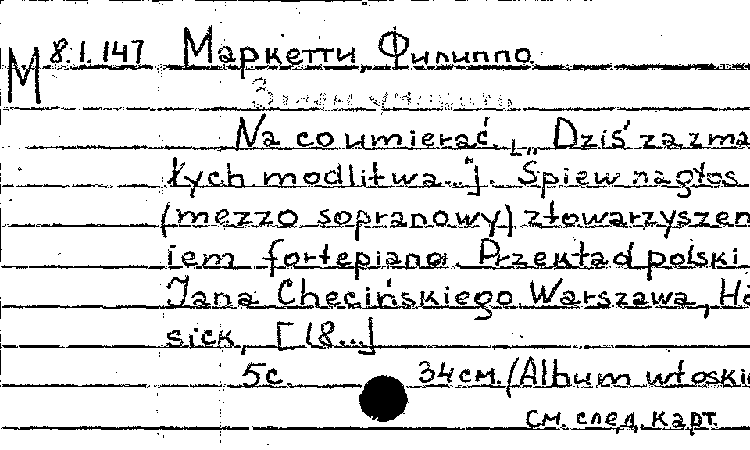 М 8.1.147 Маркетти, Филиппо
Зачем умирать
Na co umierać. [„Dziś za zma
łych modlitwa..."]. Śpiew na głos
(mezzo sopranowy) z towarzyszen
iem fortepiana. Przekład polski
Jana Checińskiego Warszawa, Hö
sick, [18...]
5с. 34 см. (Album włoskie
см. след. карт.